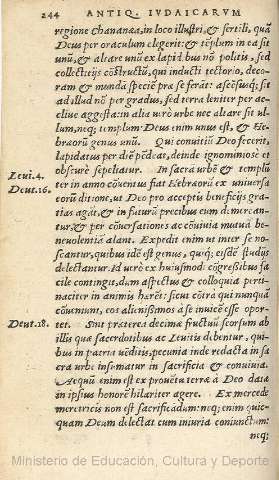 244 ANTIQ. IVDAICARVM
regione Chananæa, in loco illustri, & fertili, quã
Deus per oraculum elegerit: & tẽplum in ea sit
unũ, & altare unũ ex lapidibus nõ politis, sed
collectitijs cõstructũ, qui inducti tectorio, deco-
ram & mundã speciẽ præ se ferãt: ascẽsusq́; sit
ad illud nõ per gradus, sed terra leniter per ac-
cliue aggesta: in alia uerò urbe nec altare sit ul-
lum, neq; templum: Deus enim unus est, & He-
bræorũ genus unũ. Qui conuitiũ Deo fecerit,
lapidatus per diẽ pẽdeat, deinde ignominiose et
Leui.4. obscurè sepeliatur. In sacrã urbẽ & templũ
Deut.16. ter in anno cõuentus fiat Hebræorũ ex universa
eorũ ditione, ut Deo pro acceptis beneficijs gra-
tias agãt, & in futurũ precibus eum demerean-
tur, & per cõuersationes ac cõuiuia mutuã be-
neuolentiã alant. Expedit enim ut inter se no-
scantur, quibus idẽ est genus, quiq́; eisdẽ studijs
delectantur. Id uerò ex huiusmodi cõgreßibus fa
cile contingit, dum aspectus & colloquia perti-
naciter in animis hærẽt: sicut cõtra qui nunquã
cõueniunt, eos alienißimos à se inuicẽ esse opor-
Deut.18. tet. Sint præterea decimæ fructuũ seorsum ab
illis quæ sacerdotibus ac Leuitis debentur, qui-
bus in patria uẽditis, pecunia inde redacta in sa
cra urbe insumatur in sacrificia & conuiuia.
Aequũ enim est ex prouẽtu terræ à Deo datæ
in ipsius honorẽ hilariter agere. Ex mercede
meretricis non est sacrificãdum: neq; enim quic-
quam Deum delectat cum iniuria coniunctum:
neq;
Ministerio de Educación, Cultura y Deporte